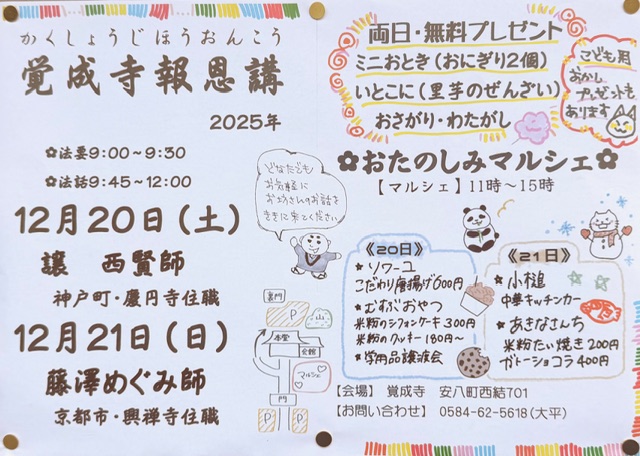 かくしょうじほうおんこう
覚成寺報恩講
2025年
✿法要9:00～9:30
✿法話9:45～12:00
12月20日(土)
譲 西賢師
神戸町・慶円寺住職
12月21日(日)
藤澤めぐみ師
京都市・興禅寺住職
どなたでも
お気軽に
お坊さんのお話を
ききに来てください
裏門
P
山
本堂
会館
マルシェ
門
P
P
両日・無料プレゼント
ミニおとき(おにぎり2個)
いとこに(里芋のぜんざい)
おさがり・わたがし
こども用
おかし
プレゼントも
あります
✿おたのしみマルシェ✿
【マルシェ】11時～15時
《20日》
*ソワーユ
こだわり唐揚げ600円
*むすぶおやつ
米粉のシフォンケーキ300円
米粉のクッキー180円～
*学用品譲渡会
《21日》
*小槌
中華キッチンカー
*あきなさんち
米粉たい焼き200円
ガトーショコラ400円
【会場】 覚成寺 安八町西結701
【お問い合わせ】 0584-62-5618(大平)